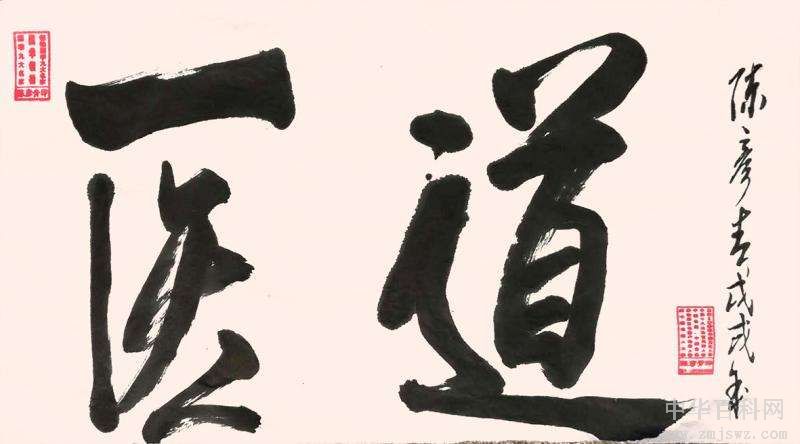 医道
陈彦青戊戌年
中华百科网
www.zmjswz.com